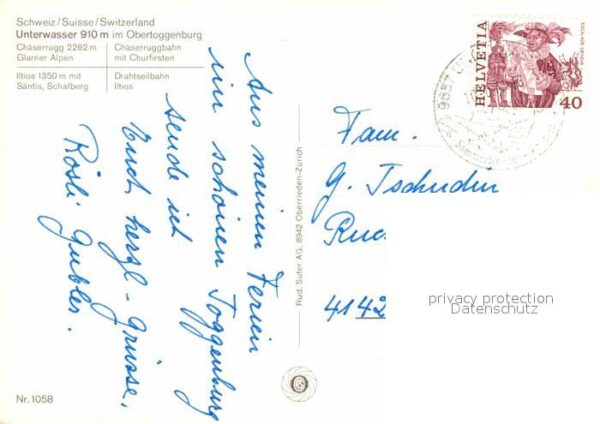 Schweiz/Suisse/Switzerland
Unterwasser 910 m im Obertoggenburg
Chäserrugg 2262 m
Glarner Alpen
Chäserruggbahn
mit Churfirsten
Iltios 1350 m mit
Säntis, Schafberg
Drahtseilbahn
Iltios
Aus meinen Ferien
im schönen Toggenburg
sende ich
Euch herzl. Grüsse.
Rösli Gubler.
Rud. Suter AG, 8942 Oberrieden-Zürich
HELVETIA
ESCALADE GENEVE
40
9657
Fam.
G. Tschudin
Rud.
4142
privacy protection
Datenschutz
Nr. 1058